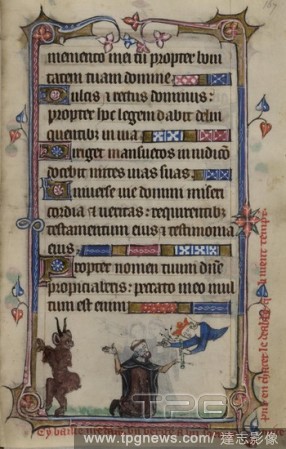 memento mei tu propter boni
tatem tuam domine
Dulcis et rectus dominus:
propter hoc legem dabit delin
quentibus in via
Diriget mansuetos in iudicio
docebit mites vias suas
Universe vie domini miseri
cordia et veritas: requirentibus
testamentum eius et testimonia
eius
Propter nomen tuum dñe
propiciaberis: peccato meo mul
tum est enim
TPG
www.tpgnews.com / 達志影像